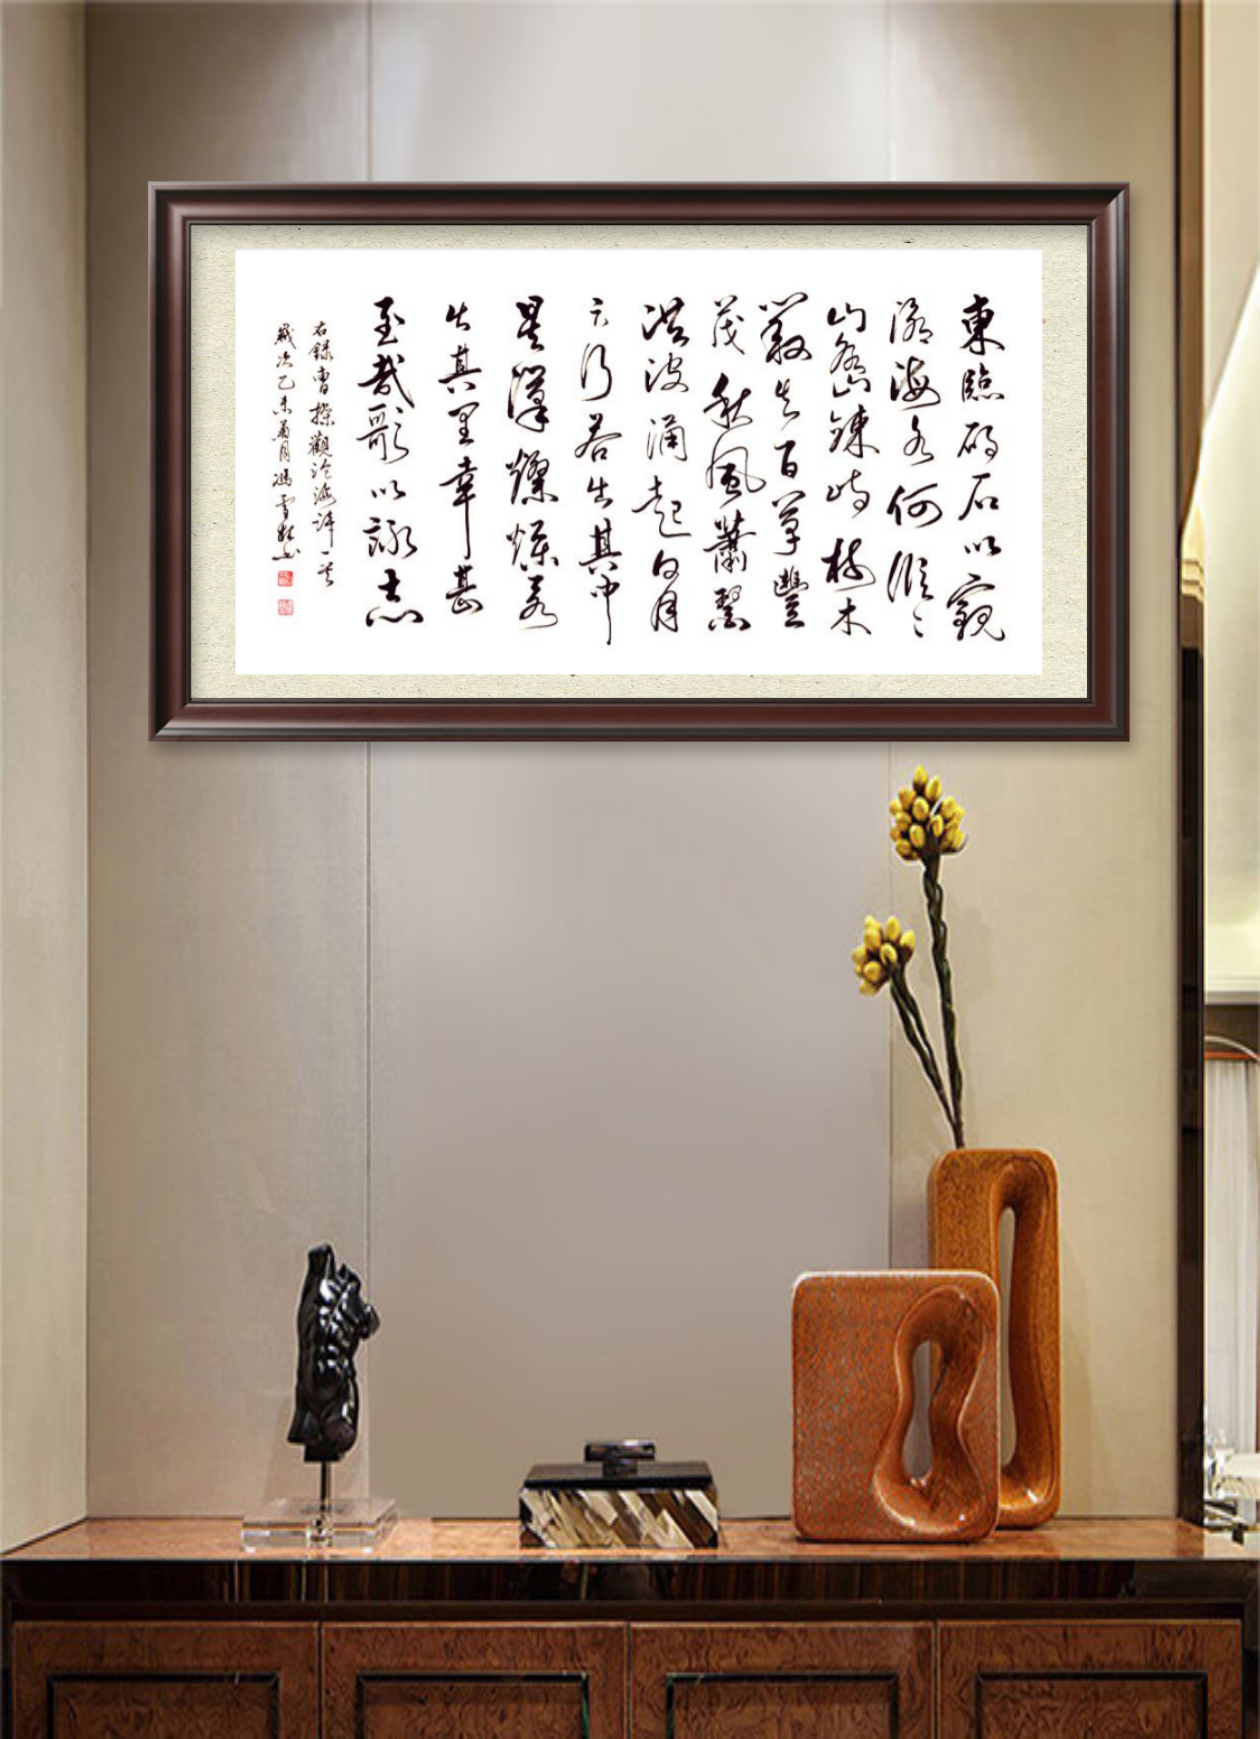 東臨碣石以觀
滄海水何澹々
山島竦峙樹木
叢生百草豐
茂秋風蕭瑟
洪波涌起日月
之行若出其中
星漢燦爛若
出其里幸甚
至哉歌以詠志
右錄曹操觀滄海詩一首
歲次乙未菊月馮雪